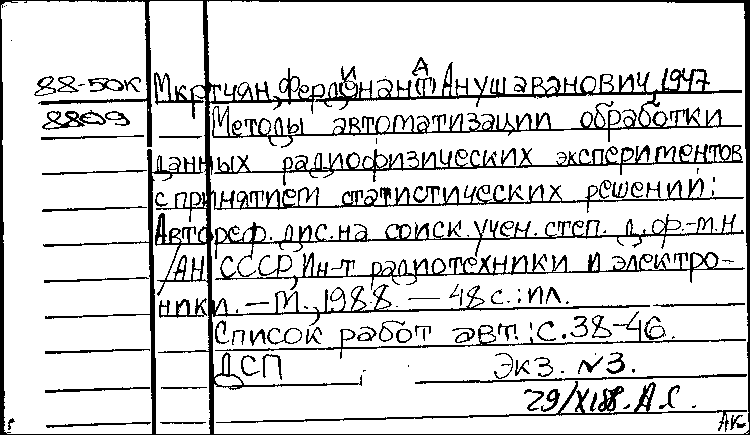 88-50к Мкртчян, Фердинант Анушаванович, 1947
8809 Методы автоматизации обработки
данных радиофизических экспериментов
с принятием статистических решений:
Автореф. дис. на соиск. учен. степ. д. ф.-м.н.
/АН СССР, Ин-т радиотехники и электро-
ники. — М., 1988. — 48 с.: ил.
Список работ авт.: с. 38-46.
ДСП Экз. №3.
29/XI88. А.С.
АК